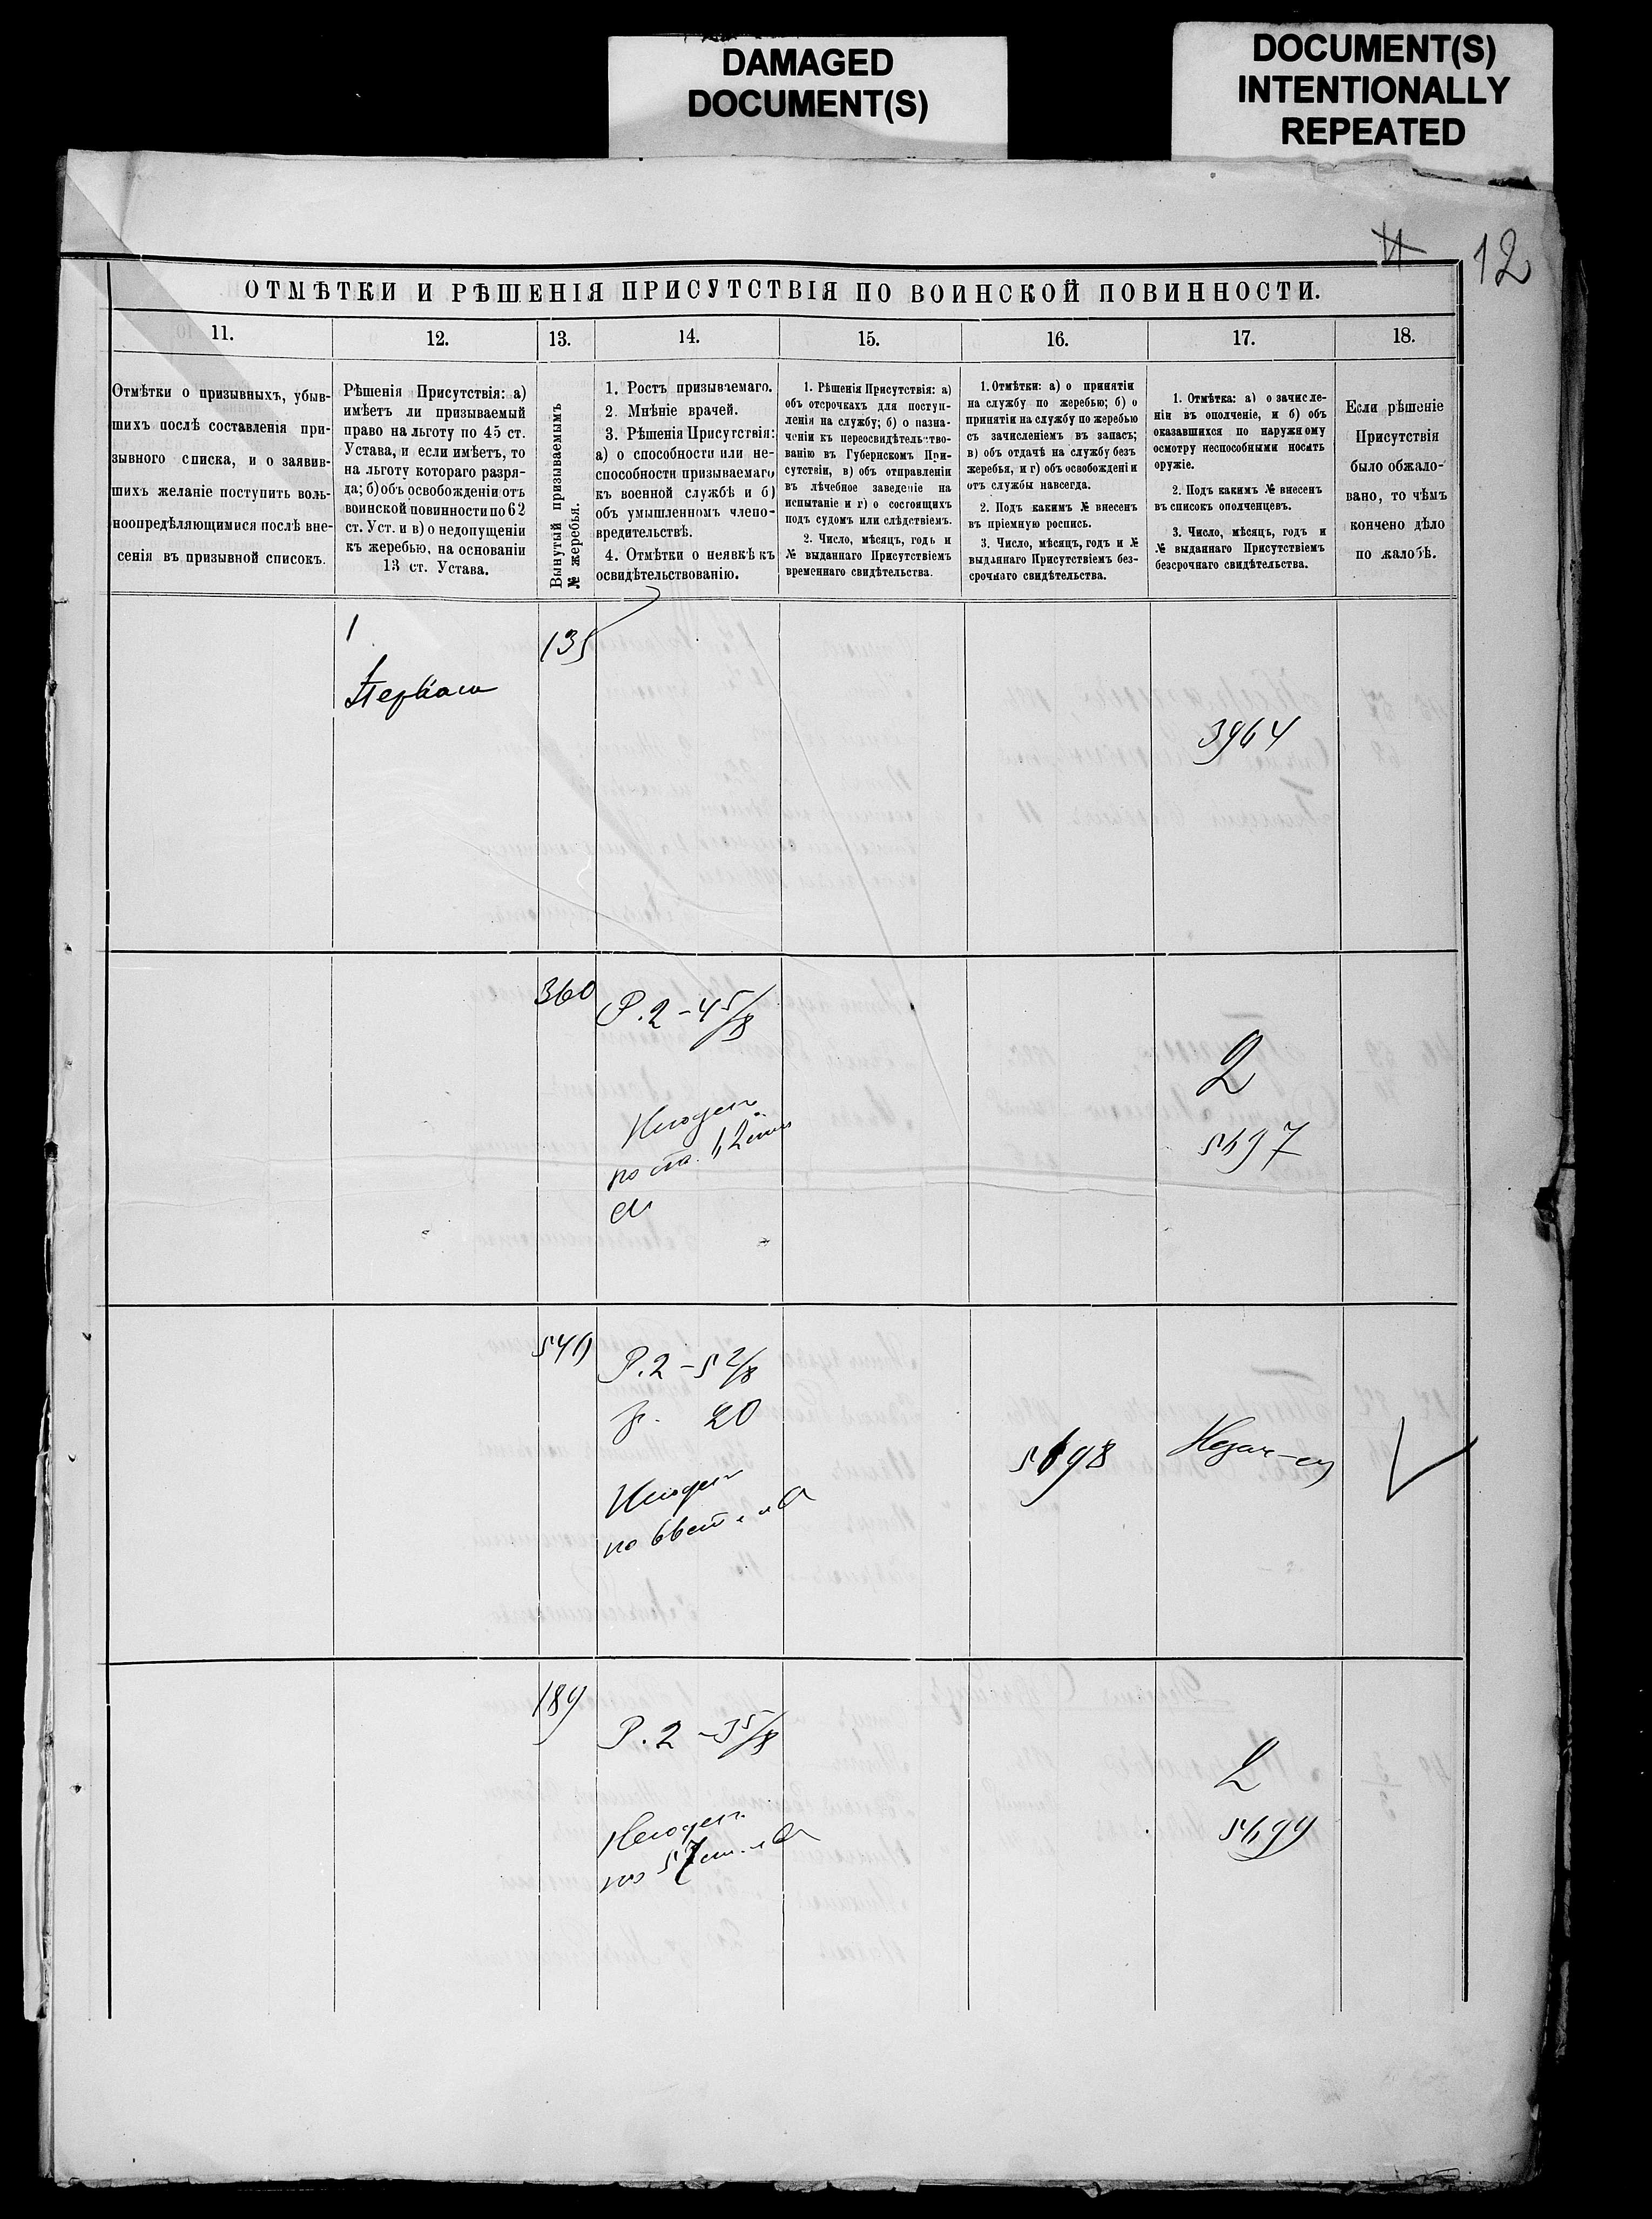 DAMAGED
DOCUMENT(S)
DOCUMENT(S)
INTENTIONALLY
REPEATED
11
12
ОТМѢТКИ И РѢШЕНІЯ ПРИСУТСТВІЯ ПО ВОИНСКОЙ ПОВИННОСТИ.
11.
12.
13.
14.
15.
16.
17.
18.
Отмѣтки о призывныхъ, убыв-
шихъ послѣ составленія при-
зывного списка, и о заявив-
шихъ желаніе поступить воль-
ноопредѣляющимися послѣ вне-
сенія въ призывной списокъ.
Рѣшенія Присутствія: а)
имѣетъ ли призываемый
право на льготу по 45 ст.
Устава, и если имѣетъ, то
на льготу котораго разря-
да; б) объ освобожденіи отъ
воинской повинности по 62
ст. Уст. и в) о недопущеніи
къ жеребью, на основаніи
13 ст. Устава.
Вынутый призываемымъ
№ жеребья.
1. Ростъ призываемаго.
2. Мнѣніе врачей.
3. Рѣшенія Присутствія:
а) о способности или не-
способности призываемаго
къ военной службѣ и б)
объ умышленномъ члено-
вредительствѣ.
4. Отмѣтки о неявкѣ къ
освидѣтельствованію.
1. Рѣшенія Присутствія: а)
объ отсрочкахъ для поступ-
ленія на службу; б) о назна-
ченіи къ переосвидѣтельство-
ванію въ Губернскомъ При-
сутствіи, в) объ отправленіи
въ лѣчебное заведеніе на
испытаніе и г) о состоящихъ
подъ судомъ или слѣдствіемъ.
2. Число, мѣсяцъ, годъ и
№ выданнаго Присутствіемъ
временнаго свидѣтельства.
1. Отмѣтки: а) о принятіи
на службу по жеребью; б) о
принятіи на службу по жеребью
съ зачисленіемъ въ запасъ;
в) объ отдачѣ на службу безъ
жеребья, и г) объ освобожденіи
отъ службы навсегда.
2. Подъ какимъ № внесенъ
въ пріемную роспись.
3. Число, мѣсяцъ, годъ и №
выданнаго Присутствіемъ без-
срочнаго свидѣтельства.
1. Отмѣтка: а) о зачисле-
ніи въ ополченіе, и б) объ
оказавшихся по наружному
осмотру неспособными носить
оружіе.
2. Подъ какимъ № внесенъ
въ списокъ ополченцевъ.
3. Число, мѣсяцъ, годъ и
№ выданнаго Присутствіемъ
безсрочнаго свидѣтельства.
Если рѣшеніе
Присутствія
было обжало-
вано, то чѣмъ
кончено дѣло
по жалобѣ.
1
135
3964
360
Р. 2 – 4 5/8
2
5697
549
Р. 2 – 5 2/8
20
5698
189
Р. 2 – 3 5/8
2
5699